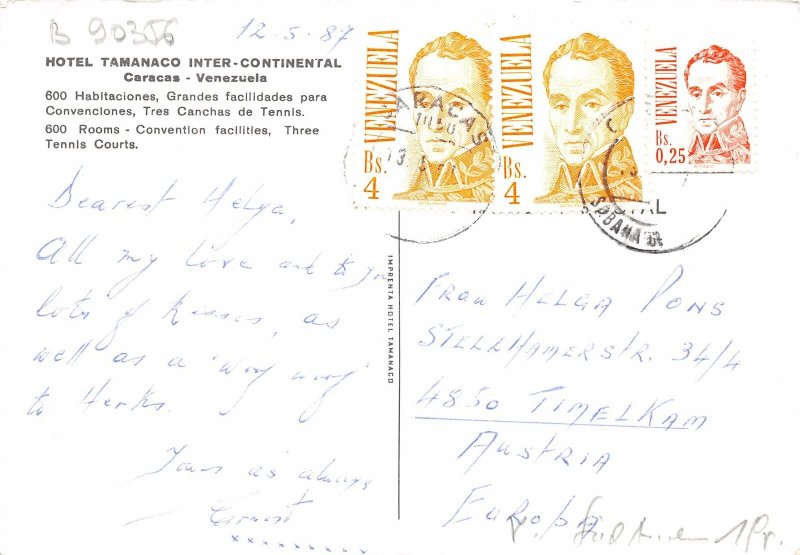 B 90356
12.5.87
HOTEL TAMANACO INTER-CONTINENTAL
Caracas - Venezuela
600 Habitaciones, Grandes facilidades para
Convenciones, Tres Canchas de Tennis.
600 Rooms - Convention facilities, Three
Tennis Courts.
Dearest Helga,
All my love and to you
lots of kisses, as
well as a "
to
Yours as always
xxxxxxxxx
IMPRENTA HOTEL TAMANACO
VENEZUELA
Bs.
4
VENEZUELA
Bs.
4
VENEZUELA
Bs.
0,25
CARACAS
FRAU HELGA PONS
STELLHAMERSTR. 34/4
4850 TIMELKAM
AUSTRIA
EUROPA